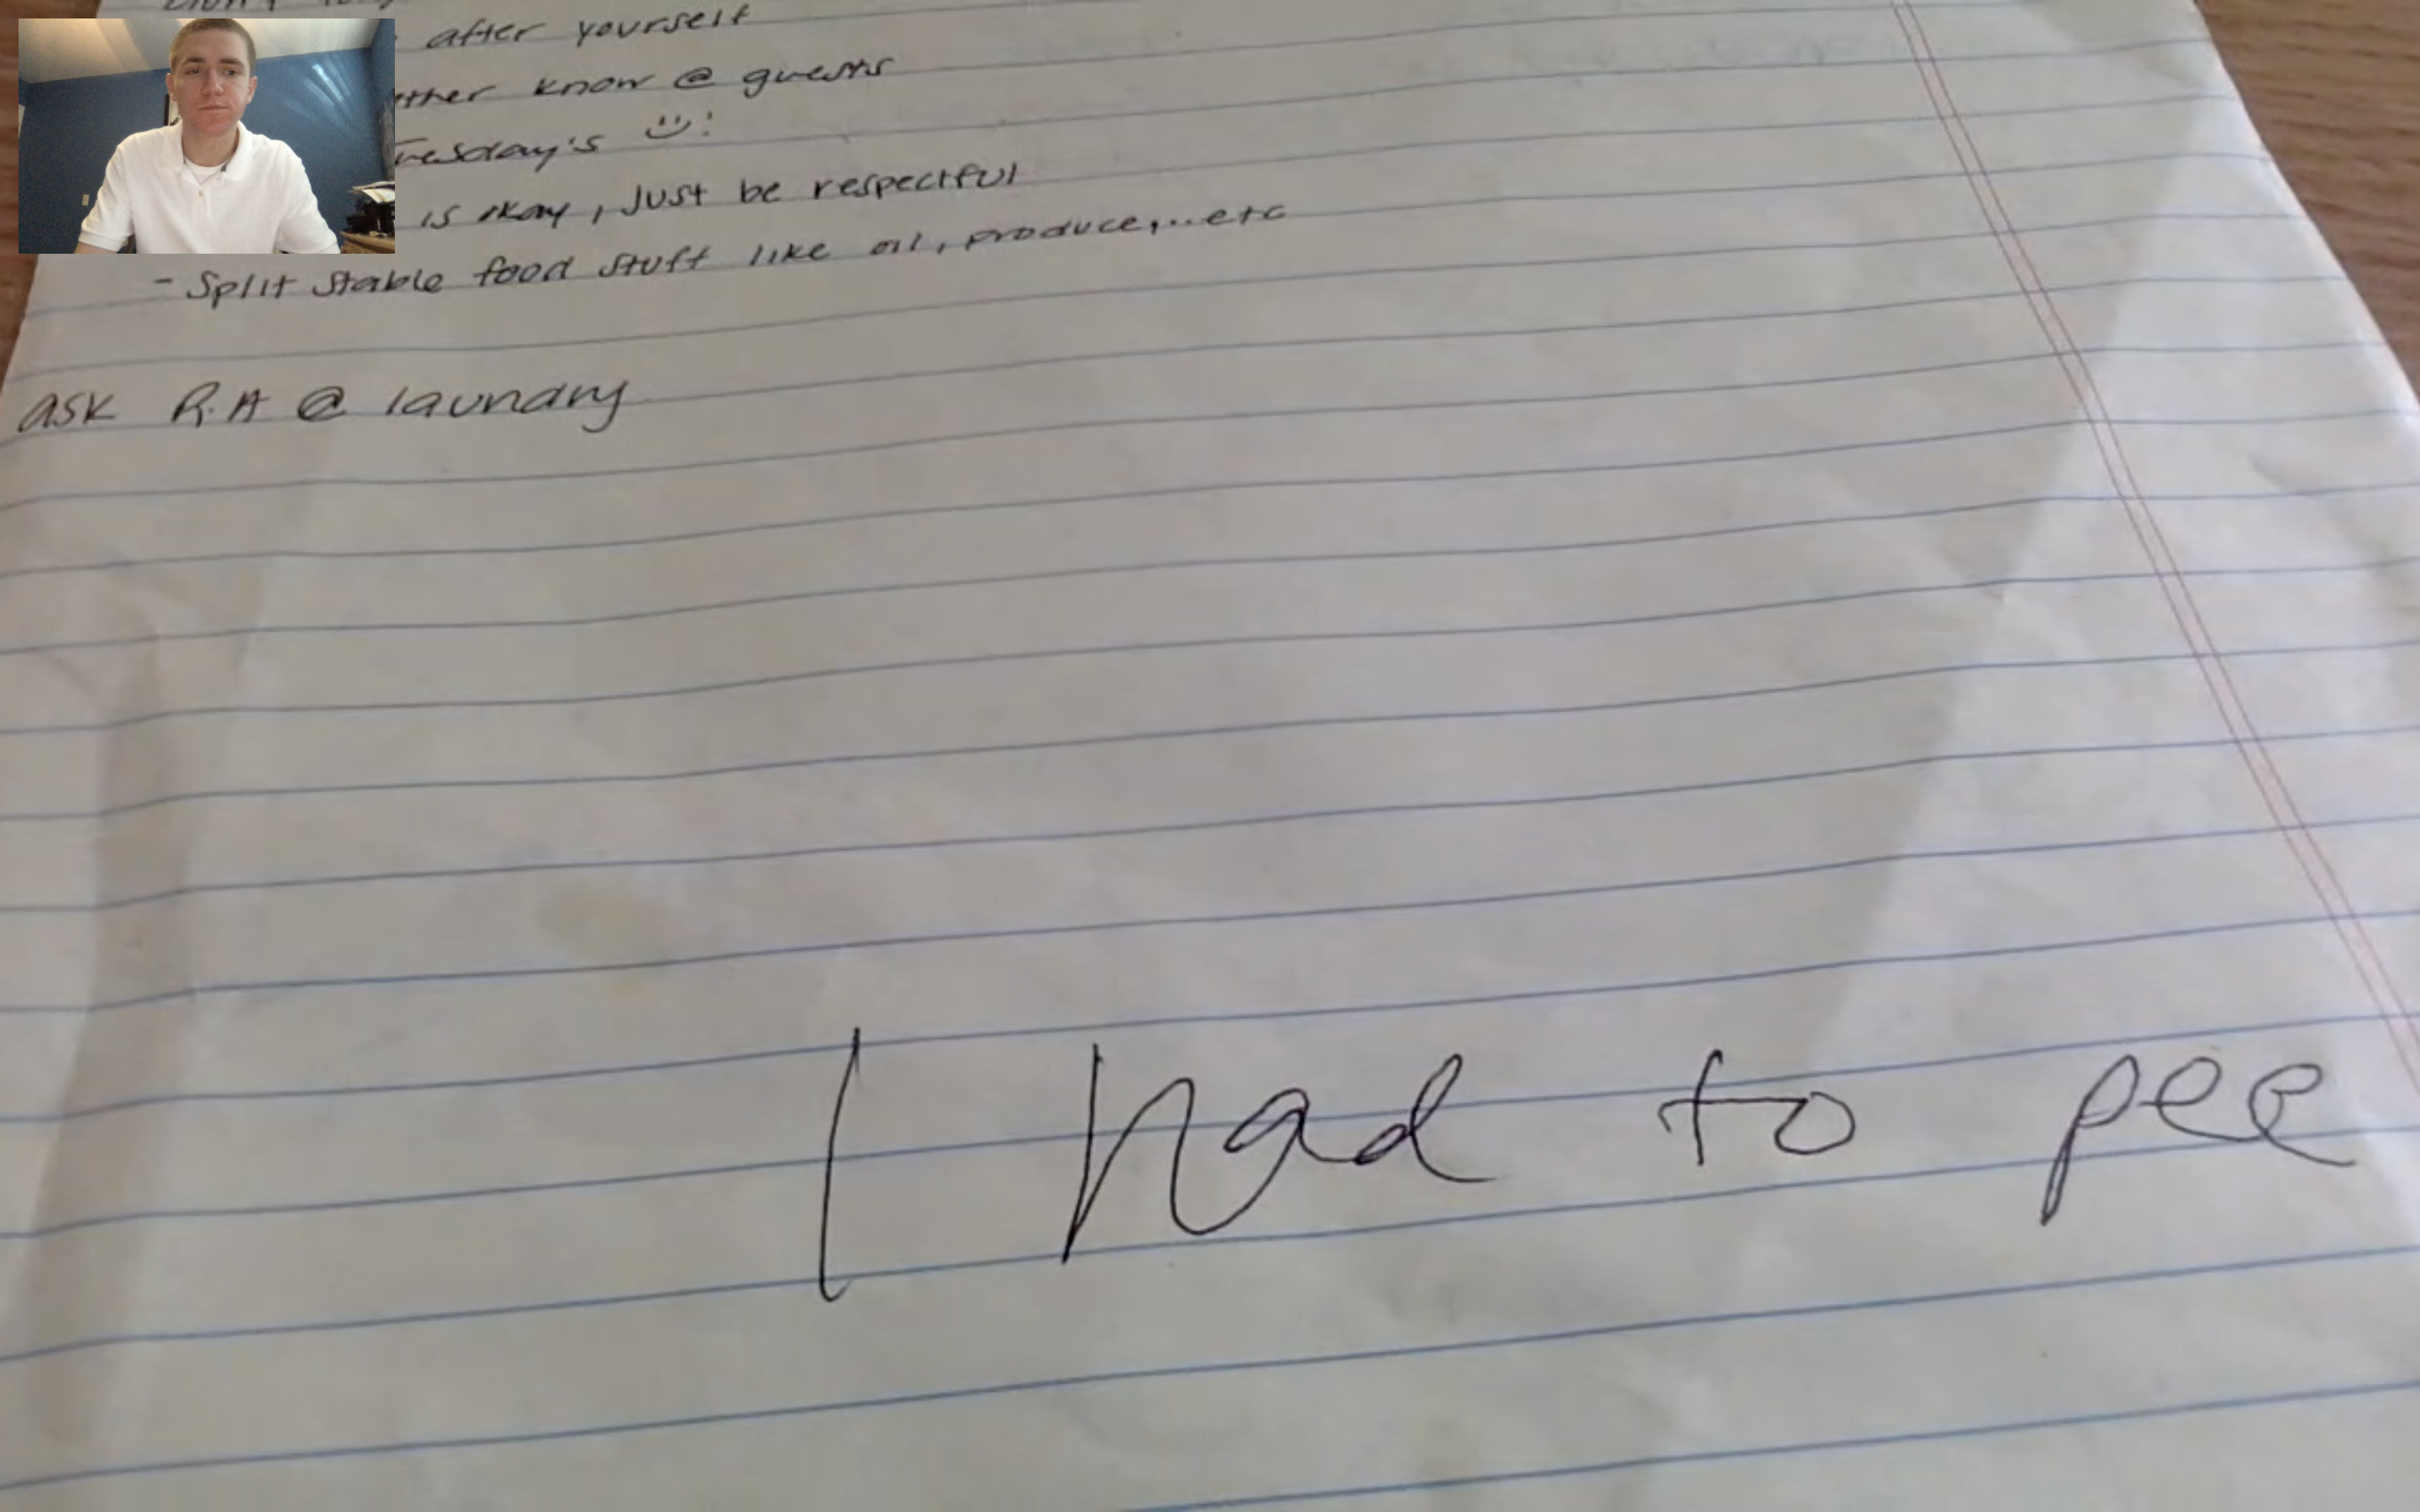 after yourself
ther know @ guests
Tuesday's :)!
is okay, Just be respectful
- Split stable food stuff like oil, produce,...etc
ask R.A @ laundry
I had to pee